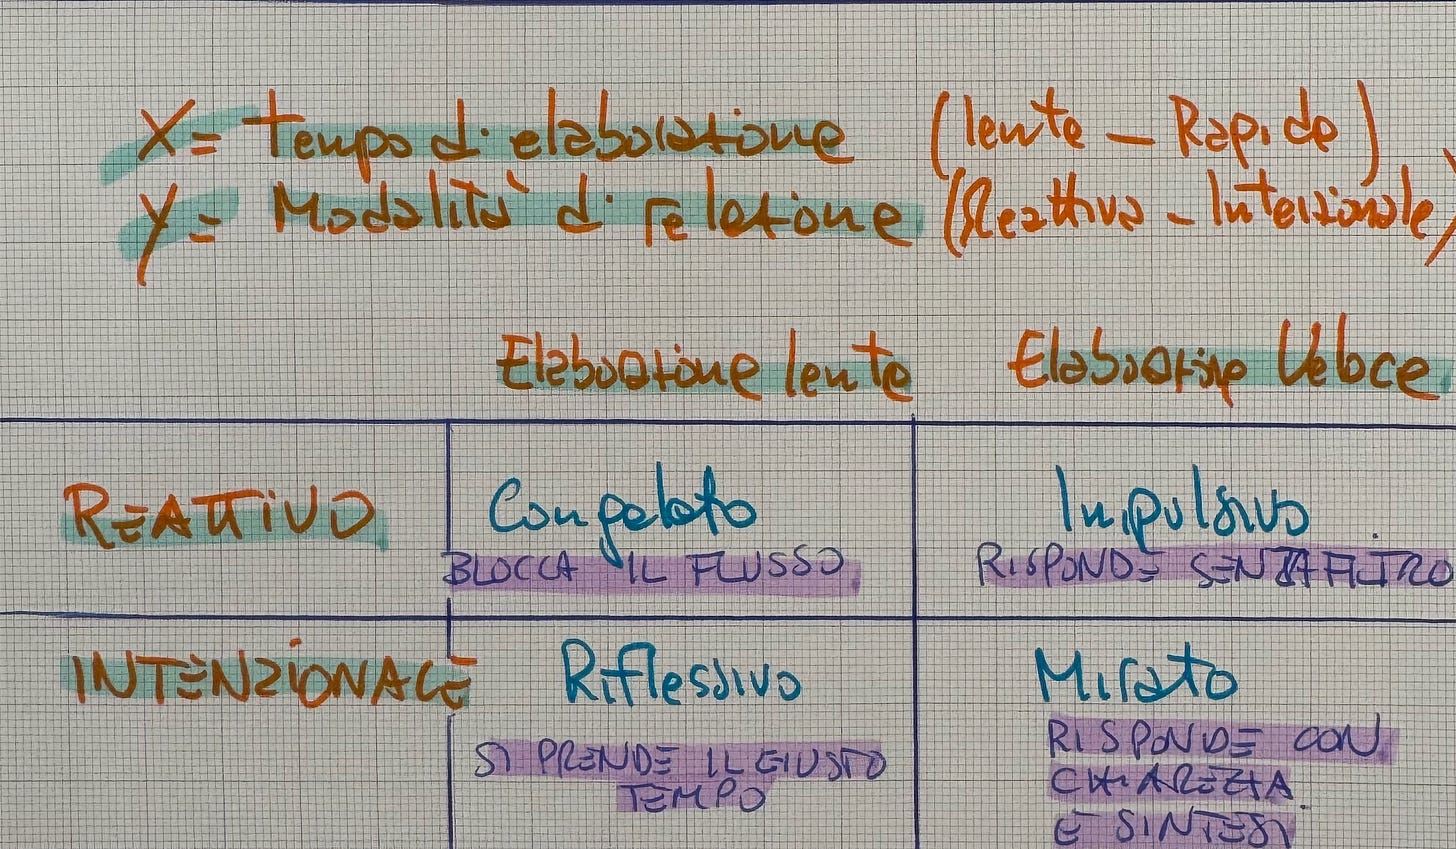 X = Tempo di elaborazione (lenta - Rapida)
Y = Modalità di relazione (Reattiva - Intenzionale)
Elaborazione lenta Elaborazione Veloce
REATTIVO Congelato Impulsivo
BLOCCA IL FLUSSO RISPONDE SENZA FILTRO
INTENZIONALE Riflessivo Mirato
SI PRENDE IL GIUSTO RISPONDE CON
TEMPO CHIAREZZA
E SINTESI